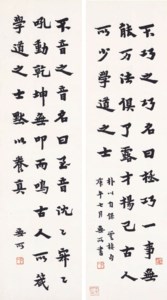 不巧之巧名曰極巧一事無
能万法俱了露才揚己古人
所少學道之士
樸以自保
庚午七月
不音之音名曰至音沈之寂之
吼動乾坤無叩而鳴古人所戒
學道之士默以養真